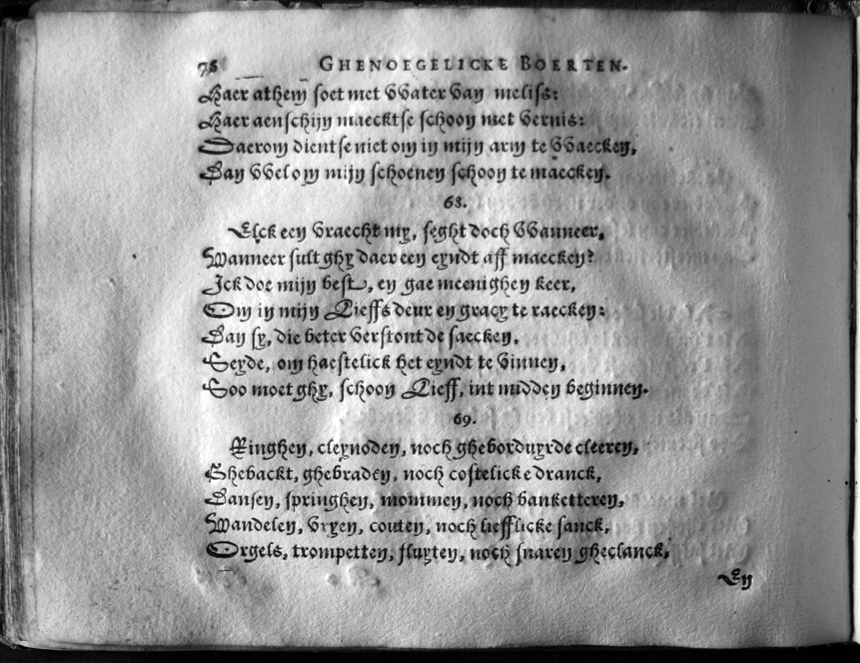 78 GHENOEGELICKE BOERTEN.
Haer athem soet met Water van meliss:
Haer aenschijn maecktse schoon met vernis:
Daerom dientse niet om in mijn arm te Waecken,
Dan Wel om mijn schoenen schoon te maecken.
68.
Elck een vraecht my, seght doch Wanneer,
Wanneer sult ghy daer een eyndt aff maecken?
Ick doe mijn best, en gae meenighen keer,
Om in mijn Lieffs deur en gracy te raecken:
Dan sy, die beter verstont de saecken,
Seyde, om haestelick het eyndt te vinnen,
Soo moet ghy, schoon Lieff, int midden beginnen.
69.
Ringhen, cleynoden, noch gheborduyrde cleeren,
Ghebackt, ghebraden, noch costelicke dranck,
Dansen, springhen, mommen, noch banketteren,
Wandelen, vryen, couten, noch liefflicke sanck,
Orgels, trompetten, fluyten, noch snaren gheclanck,
En